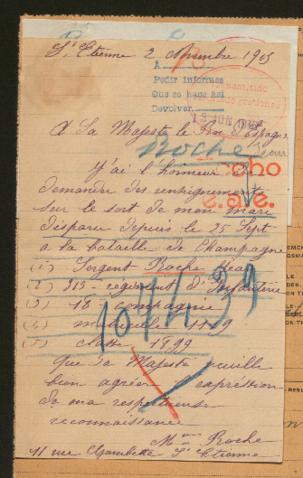 St Etienne 2 Novembre 1915
A
Pedir informes
Que se haga Asi
Devolver
JUN
A Sa Majesté le Roi d'Espagne
Roche Jean
cho
e. ave.
J'ai l'honneur de
demander des renseignements
sur le sort de mon mari
disparu depuis le 25 Sept
a la bataille de Champagne
(1) Sergent Roche Jean
(2) regiment d'Infanterie
(3) 18 compagnie
(4) matricule
(5) classe 1899
Que Sa Majesté veuille
bien agréer expression
de ma respectueuse
reconnaissance
Mme Roche
11 rue Gambetta St Etienne